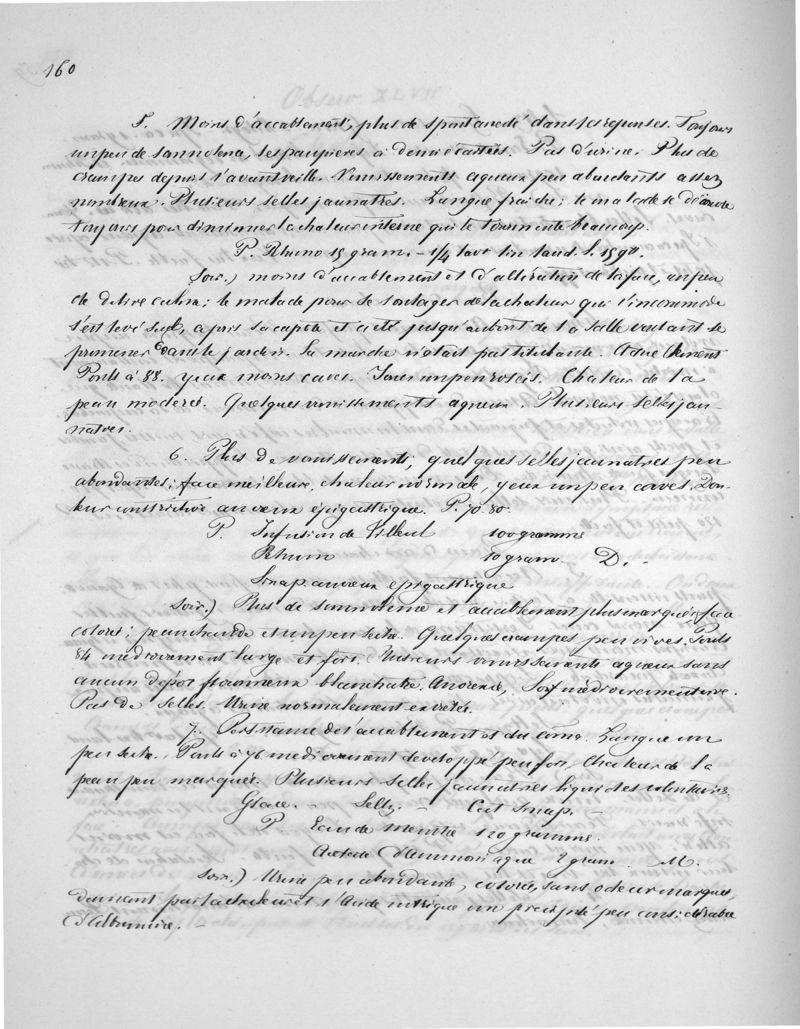 160
5. Moins d'accablement, plus de spontaneité dans les reponses. Toujours
un peu de somnolence, les paupières à demi ecartées. Pas d'urine. Plus de
crampes depuis l'avant veille. Vomissements aqueux peu abondants assez
nombreux. Plusieurs selles jaunatres. Langue fraiche; le malade se découvre
toujours pour diminuer la chaleur interne qui le tourmente beaucoup.
P. Rhum 15 gram. - 1/4 lav. lin laud. S. 15 gtt.
Soir.) moins d'accablement et d'altération de la face, un peu
de delire calme; le malade pour se soulager de la chaleur qui l'incommode
s'est levé seul, a pris sa capote et a été jusqu'au bout de la salle voulant se
promener dans le jardin. Sa marche n'était pas titubante.
Pouls à 88. yeux moins caves. Joues un peu rosées. Chaleur de la
peau moderée. Quelques vomissements aqueux. Plusieurs selles jau-
natres.
6. Plus de vomissements; quelques selles jaunatres peu
abondantes; face meilleure, chaleur normale, yeux un peu caves. Dou-
leur constrictive au creux épigastrique. P. 70. 80.
P. Infusion de Tilleul 100 grammes
Rhum 10 gram. D.
Sinap. au creux épigastrique
Soir.) Plus de somnolence et accablement plus marqué; face
colorée; peau chaude et un peu seche. Quelques crampes peu vives. Pouls
84 médiocrement large et fort. Plusieurs vomissements aqueux sans
aucun dépot floconneux blanchatre. Anorexie, Soif médiocrement vive.
Pas de selles. Urine normalement excretée.
7. Persistance de l'accablement et du coma. Langue un
peu seche. Pouls à 76 mediocrement developpé peu fort, Chaleur de la
peau peu marquée. Plusieurs selles jaunatres liquides volontaires.
Glace. - Seltz. - Cat. Sinap. -
P. Eau de menthe 120 grammes.
Acetate d'Ammoniaque 2 gram. M.
Soir.) Urine peu abondante, colorée, sans odeur marquée,
donnant par la chaleur et l'Acide nitrique un precipité peu considerable
d'Albumine. -